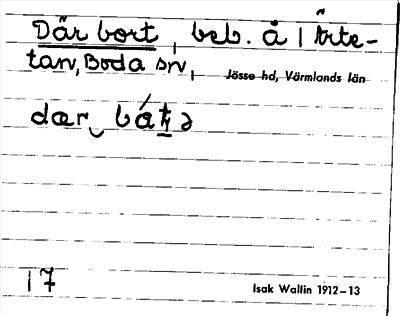 Där bort, beb. å Ärte-
tan, Boda sn,
Jösse hd, Värmlands län
17
Isak Wallin 1912–13